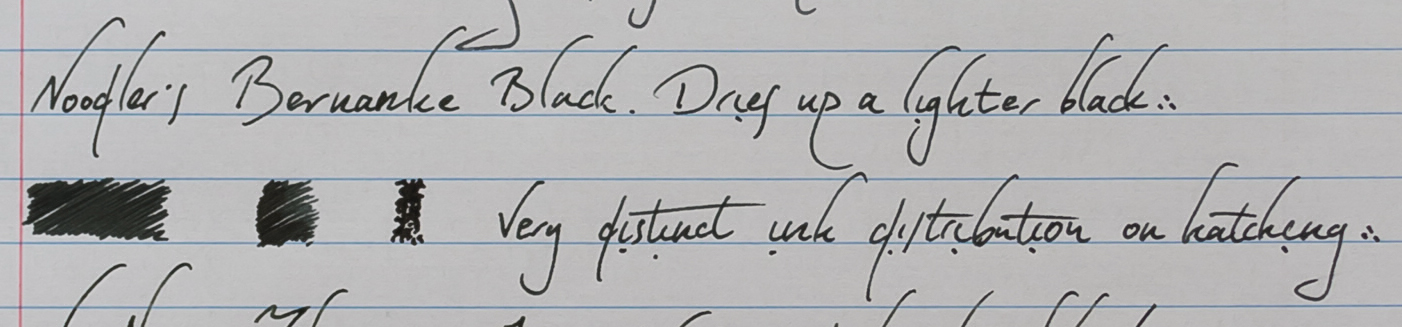 Noodler's Bernanke Black. Dries up a lighter black∴
Very distinct ink distribution on hatching∴